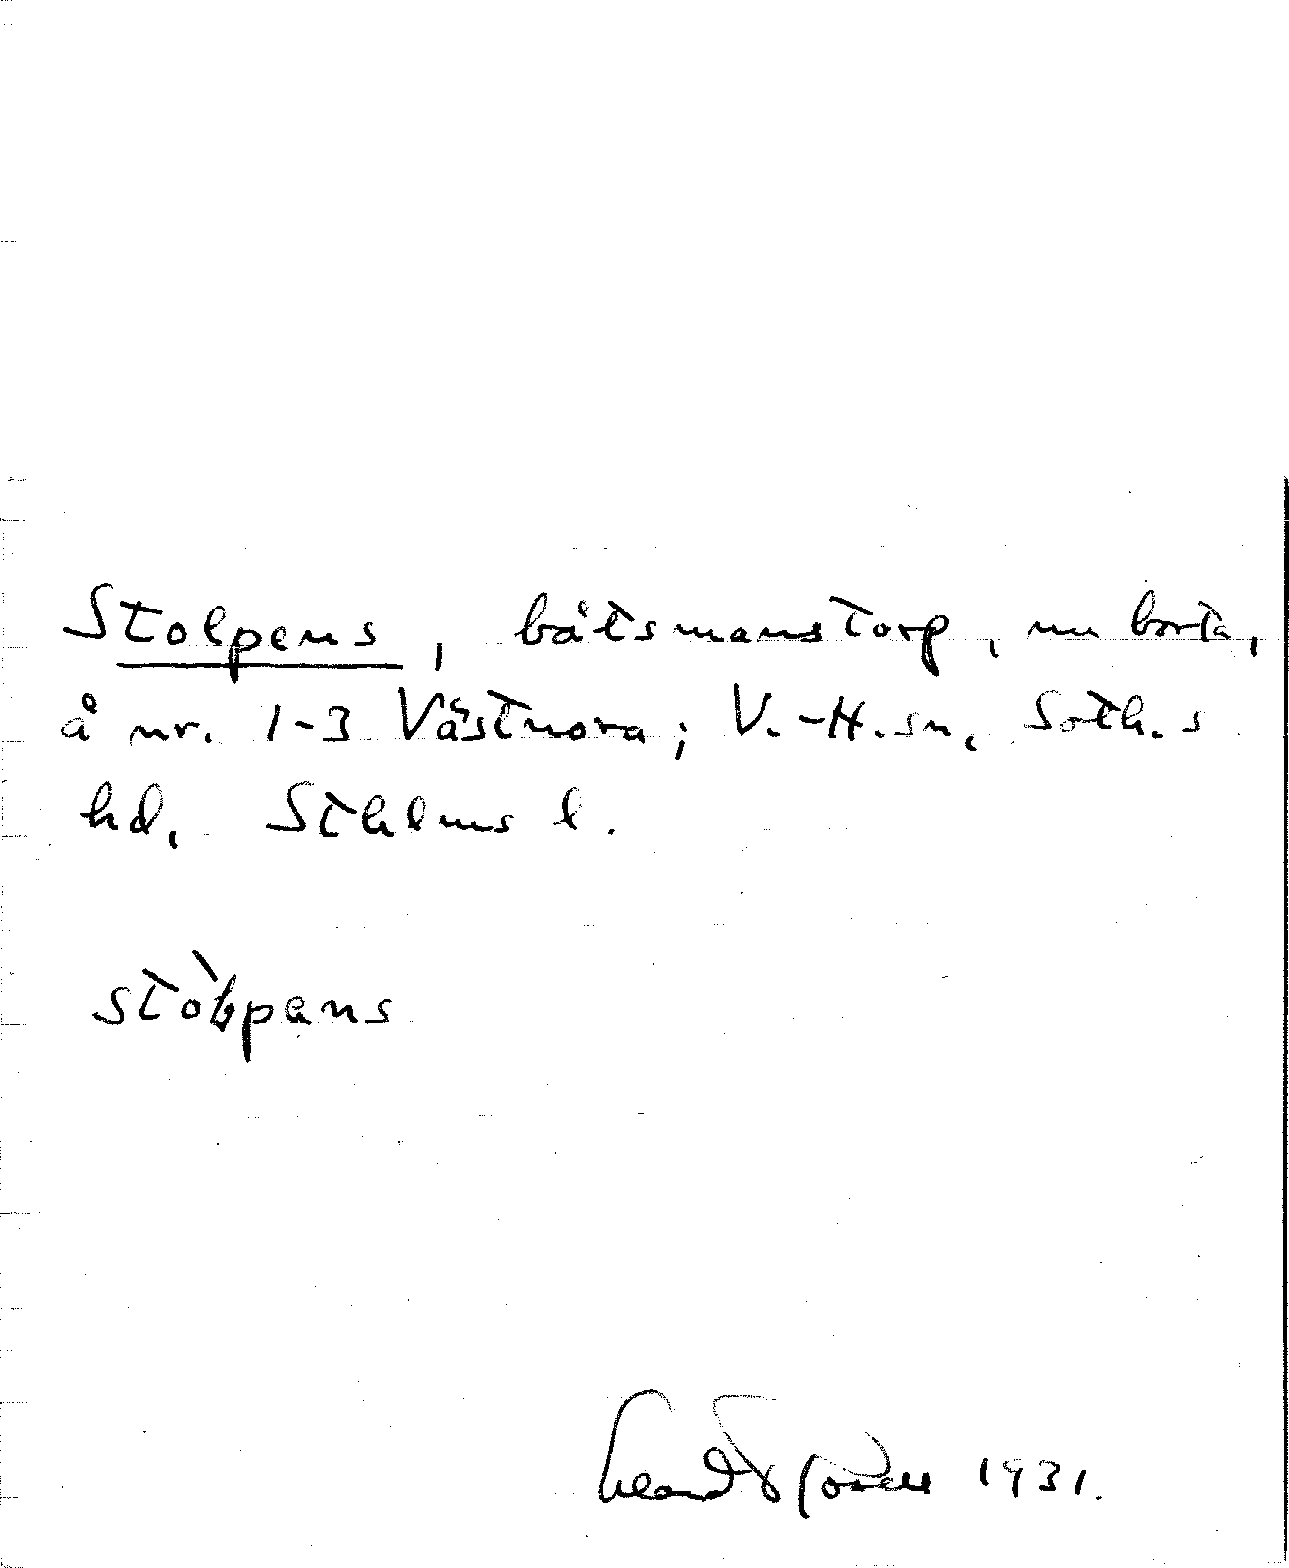 Stolpens, båtsmanstorp, nu borta,
å nr. 1-3 Västnora; V.-H. sn, Soth.s
hd, Sthlms l.
stòlpans
1931.